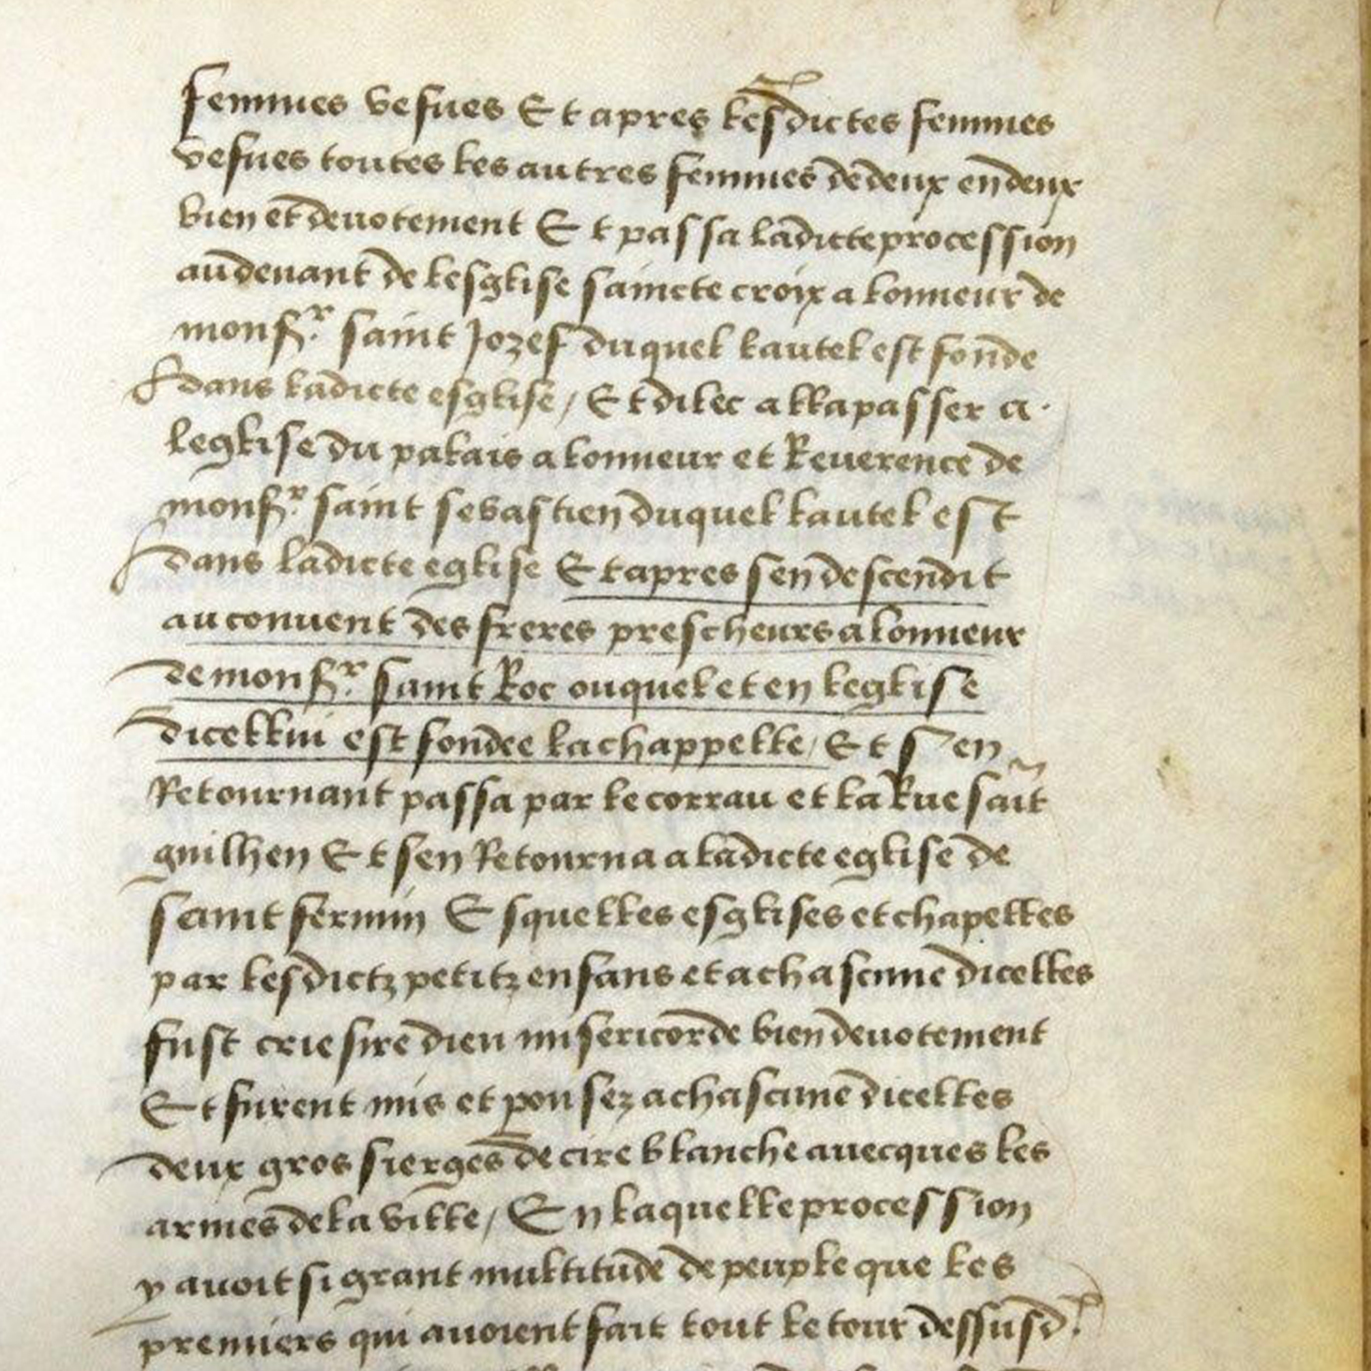 femmes vefues Et apres lesdictes femmes
vefues toutes les autres femmes de deux en deux
bien et devotement Et passa ladicte procession
au devant de lesglise saincte croix a lonneur de
monsr. saint Jozef duquel lautel est fonde
dans ladicte esglise, Et dilec alla passer a
leglise du palais a lonneur et Reuerence de
monsr. saint sebastien duquel lautel est
dans ladicte eglise Et apres sen descendit
au conuent des freres prescheurs a lonneur
de monsr. saint Roc ouquel et en leglise
dicellui est fondee la chappelle, Et s en
Retournant passa par le corrau et la Rue sait
guilhen Et sen Retourna a ladicte eglise de
saint fermin Esquelles esglises et chapelles
par lesdictz petitz enfans et a chascune dicelles
fust crie sire dieu misericorde bien deuotement
Et furent mis et pousez a chascune dicelles
deux gros sierges de cire blanche auecques les
armes de la ville, En laquelle procession
y auoit si grant multitude de peuple que les
premiers qui auoient fait tout le tour dessusd.